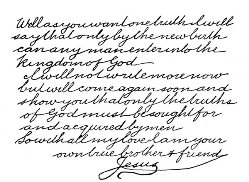 Well as you want one truth I will
say that only by the new birth
can any man enter into the
Kingdom of God
I will not write more now
but will come again soon and
show you that only the truths
of God must be sought for
and acquired by men
So with all my love I am your
own true brother & friend
Jesus